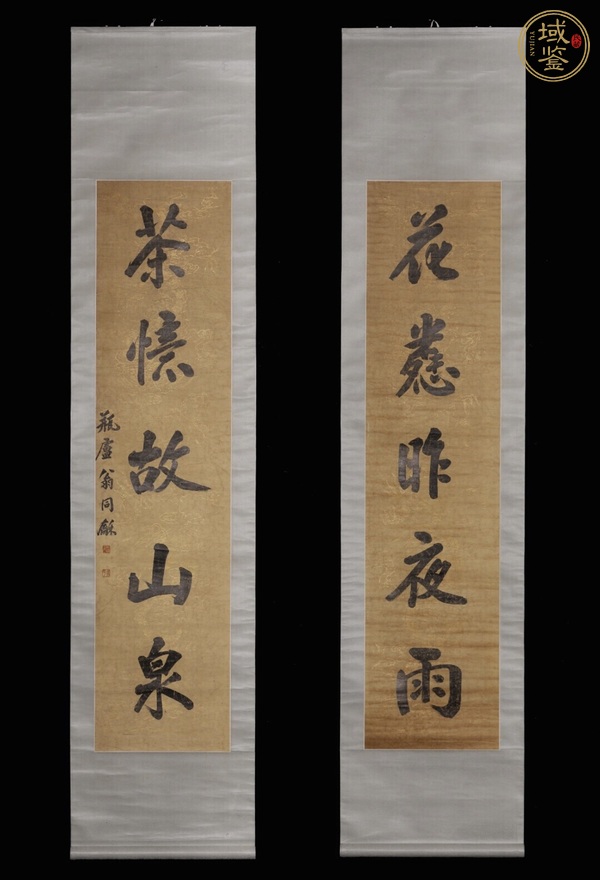 花愁昨夜雨
茶憶故山泉
瓶廬翁同龢
域鉴
YUJIAN